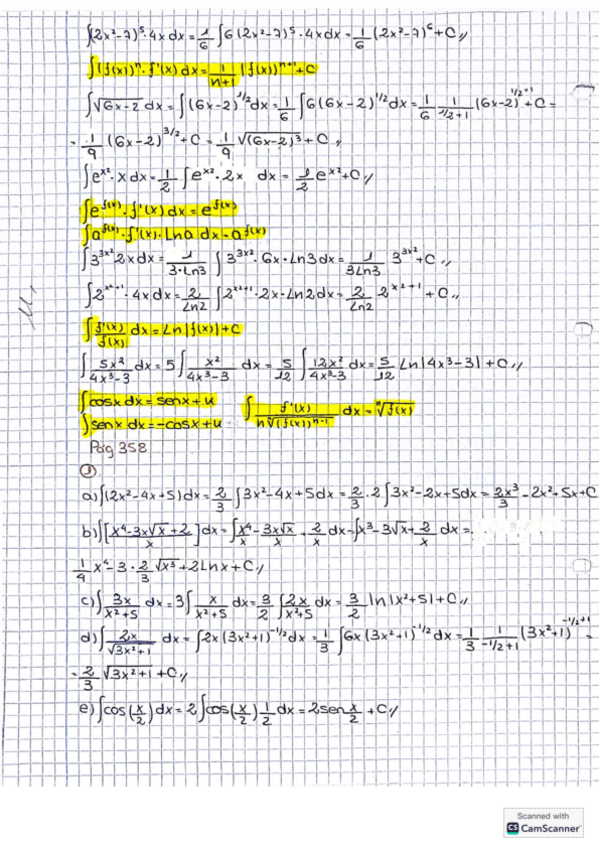 ∫(2x²-7)⁵·4x dx = 1/6 ∫6(2x²-7)⁵·4x dx = 1/6 (2x²-7)⁶ + C //
∫(f(x))ⁿ·f'(x) dx = 1/(n+1) (f(x))ⁿ⁺¹ + C
∫√(6x-2) dx = ∫(6x-2)^(1/2) dx = 1/6 ∫6(6x-2)^(1/2) dx = 1/6 · 1/(1/2+1) (6x-2)^(1/2+1) + C =
= 1/9 (6x-2)^(3/2) + C = 1/9 √(6x-2)³ + C //
∫e^(x²)·x dx = 1/2 ∫e^(x²)·2x dx = 1/2 e^(x²) + C //
∫e^(f(x))·f'(x) dx = e^(f(x))
∫a^(f(x))·f'(x)·Ln a dx = a^(f(x))
∫3^(3x²) 2x dx = 1/(3·Ln3) ∫3^(3x²)·6x·Ln3 dx = 1/(3Ln3) 3^(3x²) + C //
∫2^(x²+1)·4x dx = 2/Ln2 ∫2^(x²+1)·2x·Ln2 dx = 2/Ln2 2^(x²+1) + C //
∫f'(x)/f(x) dx = Ln|f(x)| + C
∫5x²/(4x³-3) dx = 5∫x²/(4x³-3) dx = 5/12 ∫12x²/(4x³-3) dx = 5/12 Ln|4x³-3| + C //
∫cosx dx = senx + u ∫f'(x)/(n ⁿ√(f(x))ⁿ⁻¹) dx = ⁿ√f(x)
∫senx dx = -cosx + u
Pág 358
③
a) ∫(2x²-4x+5) dx = 2/3 ∫3x²-4x+5 dx = 2/3·2∫3x²-2x+5 dx = 2x³/3 - 2x² + 5x + C
b) ∫[(x⁴-3x√x+2)/x] dx = ∫x⁴/x - 3x√x/x + 2/x dx = ∫x³-3√x+2/x dx =
1/4 x⁴ - 3·2/3 √x³ + 2Lnx + C //
c) ∫3x/(x²+5) dx = 3∫x/(x²+5) dx = 3/2 ∫2x/(x²+5) dx = 3/2 ln|x²+5| + C //
d) ∫2x/√(3x²+1) dx = ∫2x(3x²+1)^(-1/2) dx = 1/3 ∫6x(3x²+1)^(-1/2) dx = 1/3 · 1/(-1/2+1) (3x²+1)^(-1/2+1) =
= 2/3 √(3x²+1) + C //
e) ∫cos(x/2) dx = 2∫cos(x/2) 1/2 dx = 2sen x/2 + C //
Scanned with
CS CamScanner